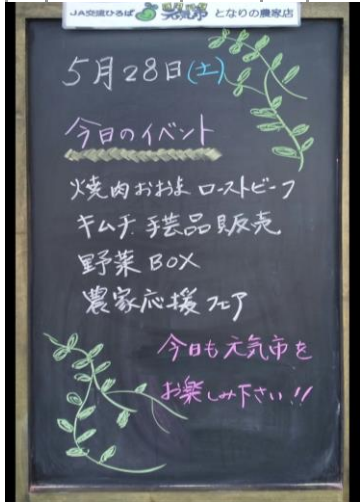 JA交流ひろば 元気市 となりの農家店
5月28日(土)
今日のイベント
焼肉おおよ ローストビーフ
キムチ 手芸品販売
野菜BOX
農家応援フェア
今日も元気市を
お楽しみ下さい!!